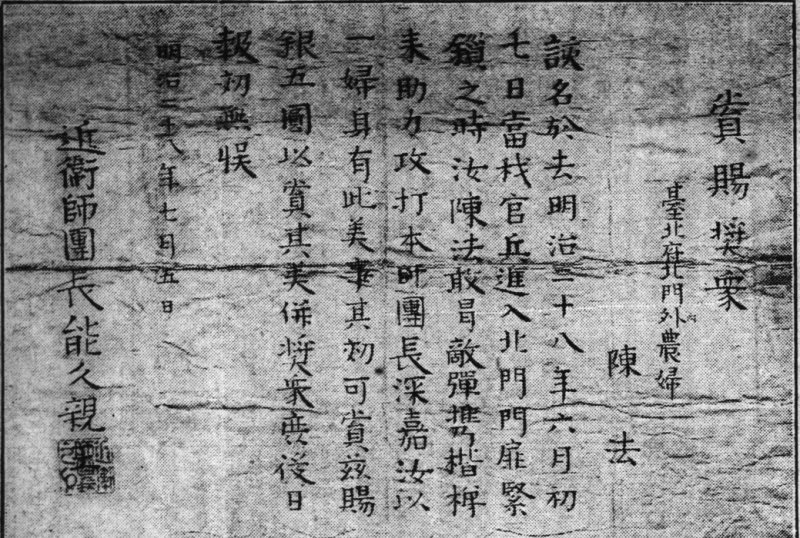 賞賜奬衆
臺北府北門外農婦
陳法
該名於去明治二十八年六月初
七日當我官兵進入北門門扉緊
鎖之時汝陳法敢冒敵彈携楷梯
来助力攻打本師團長深嘉汝以
一婦身有此美事其功可賞茲賜
銀五圓以賞其美併奬衆庶後日
報効無悞
明治二十八年七月五日
近衛師團長能久親